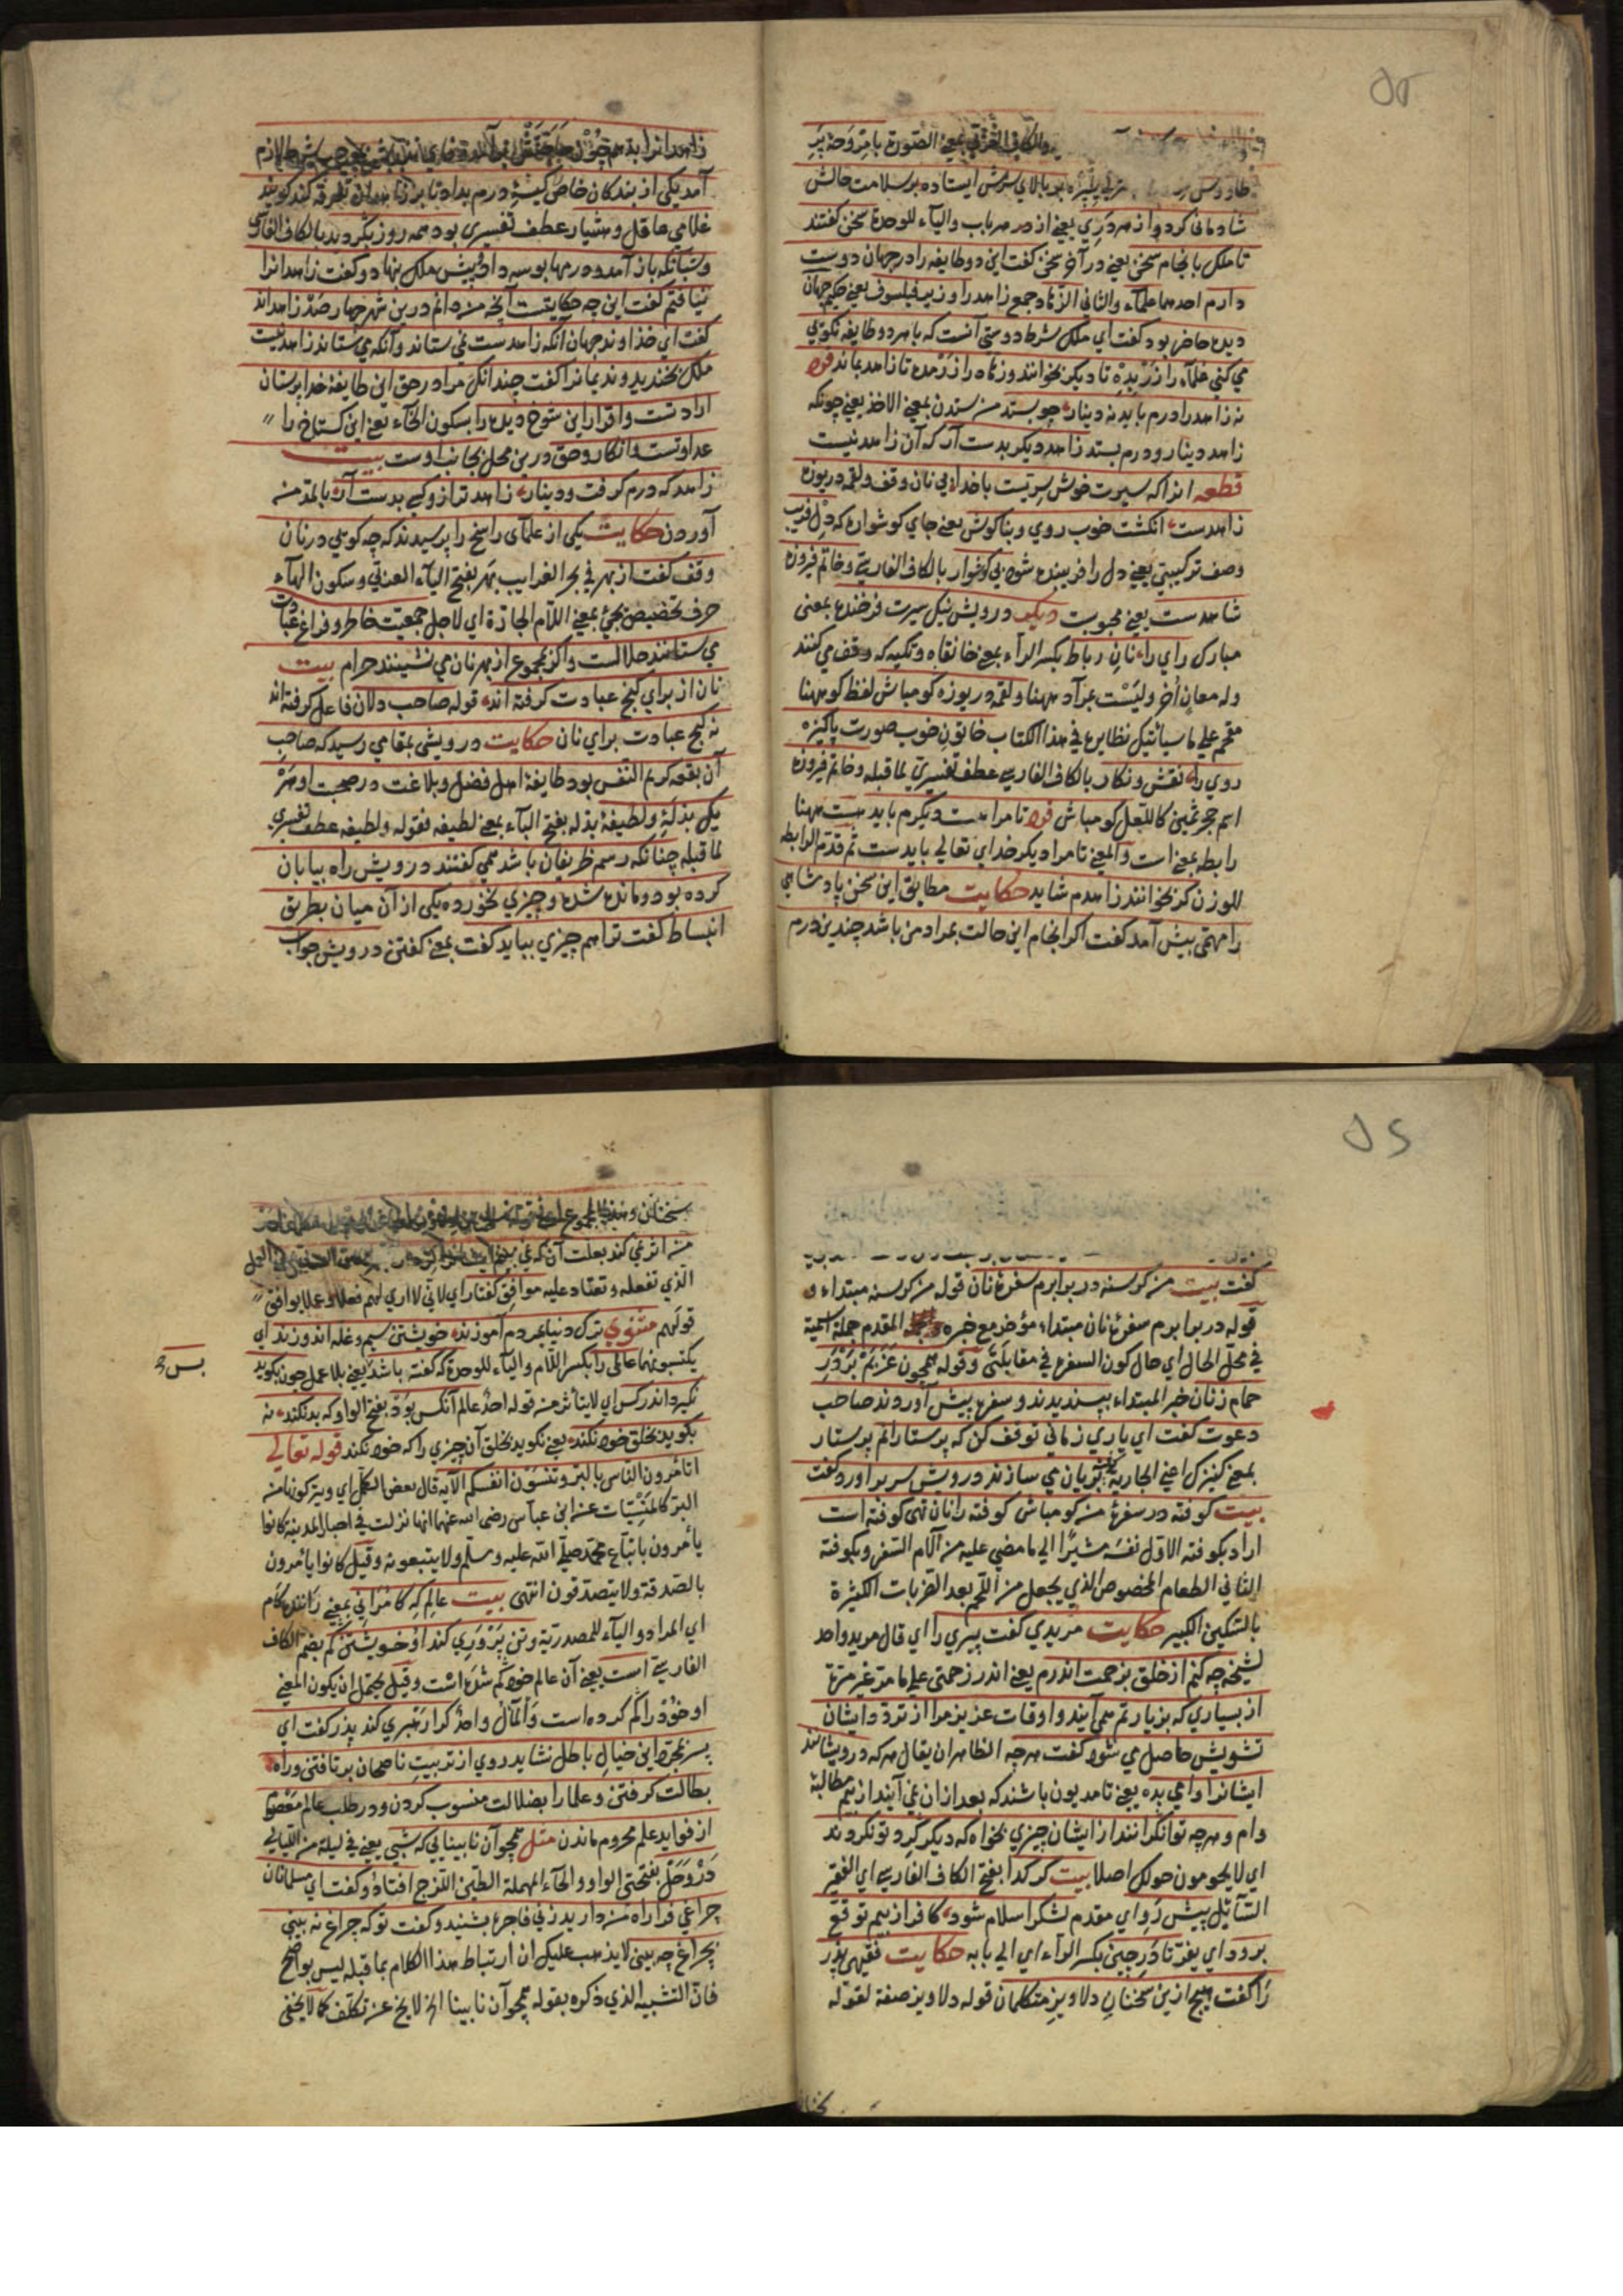 ۵۵
والكاف الفارسي بمعنى الصورة با مروحۀ پر
طاووس بر بالاي سرش ايستاده بر سلامت حالش
شادماني كرد واز هر دري يعني از هر باب والياء للوحدة سخن گفتند
تا ملك بانجام سخن يعني در آخر سخن گفت اين دو طايفه را در جهان دوست
دارم احدهما علماء والثاني الزهاد جمع زاهد را وزير فيلسوف يعني حكيم جهان
ديده حاضر بود گفت اي ملك شرط دوستي آنست كه با هر دو طايفه نكويي
مي كني علماء را زر بده تا ديگر بخوانند وزهاد را زر مده تا زاهد بمانند فرد
نه زاهد را درم بايد نه دينار چو بستد من ستدن بمعنى الاخذ يعني چونكه
زاهد دينار ودرم بستد زاهد ديگر بدست آر كه آن زاهد نيست
قطعه انرا كه سيرت خوش سريست با خدا بي نان وقف ولقمۀ دريوزه
زاهدست انگشت خوب روي وبناگوش يعني جاي گوشواره كه دل فريب
وصف تركيبي يعني دل را فريبنده شود بي گوشوار بالكاف الفارسي وخاتم فيروزه
شاهدست يعني محبوبست ديگر درويش نيك سيرت فرخنده بمعنى
مبارك راي را نان رباط بكسر الراء بمعنى خانقاه وتكيه كه وقف مي كنند
وله معان أخر وليست بمراد ههنا ولقمۀ دريوزه گو مباش لفظ گو ههنا
مقحم على ما سيأتيك نظايره في هذا الكتاب خاتون خوب صورت پاكيزه
روي را نقش ونگار بالكاف الفارسي عطف تفسيري لما قبله وخاتم فيروزه
اسم حجر ثمين كاللعل گو مباش فرد تا مرا هست وديگرم بايد هست ههنا
رابطه بمعنى است والمعنى تا مرا ديگر خداي تعالى بايدست ثم قدم الرابطه
للوزن گر نخوانند زاهدم شايد حكايت مطابق اين سخن پادشاهي
را مهمي پيش آمد گفت اگر انجام اين حالت بمراد من باشد چندين درم
زاهدانرا بدهم چون حاجتش بر آمد
آمد يكي از بندگان خاص كيسۀ درم بداد تا بر زاهدان تفرقه كند گويند
غلامي عاقل وهشيار عطف تفسيري بود همه روز بگرديد بالكاف الفارسي
وشبانگه باز آمد ودرمها بوسه داد وپيش ملك بنهاد وگفت زاهدانرا
نيافتم گفت اين چه حكايتست آنچه من دانم درين شهر چهار صد زاهداند
گفت اي خداوند جهان آنكه زاهدست نمي ستاند وآنكه مي ستاند زاهد نيست
ملك بخنديد ونديمانرا گفت چندانك مرا در حق اين طايفۀ خدا پرستان
ارادتست واقرار اين شوخ ديده را بسكون الخاء يعني اين گستاخ را
عداوتست وانكار وحق درين محل بجانب اوست بيت
زاهد كه درم گرفت ودينار زاهد تر ازو كسي بدست آر بالمد من
آوردن حكايت يكي از علماي راسخ را پرسيدند كه چه گويي در نان
وقف گفت از بهر في بحر الغرايب بهر بفتح الباء العربي وسكون الهاء
حرف تخصيص يجئ بمعنى اللام الجارة اي لاجل جمعيت خاطر وفراغ عبادت
مي ستانند حلالست واگر مجموع از بهر نان مي نشينند حرام بيت
نان از براي كنج عبادت گرفته اند قوله صاحب دلان فاعل گرفته اند
نه كنج عبادت براي نان حكايت درويشي بمقامي رسيد كه صاحب
آن بقعه كريم النفس بود طايفۀ اهل فضل وبلاغت در صحبت او هر
يك بذلۀ ولطيفۀ بذله بفتح الباء بمعنى لطيفه فقوله ولطيفه عطف تفسيري
لما قبله چنانكه رسم ظريفان باشد همي گفتند درويش راه بيابان
كرده بود ومانده شده وچيزي نخورده يكي از آن ميان بطريق
انبساط گفت ترا هم چيزي ببايد گفت بمعنى گفتن درويش جواب
۵۶
گفت بيت من گرسنه در برابرم سفرۀ نان قوله من گرسنه مبتداء و
قوله در برابرم سفرۀ نان مبتداء مؤخر مع خبره المقدم جملة اسمية
في محل الحال اي حال كون السفرة في مقابلتي وقوله همچون عزبم بر در
حمام زنان خبر المبتداء بپسنديدند وسفره پيش آوردند صاحب
دعوت گفت اي ياري زماني توقف كن كه پرستارانم پرستار
بمعنى كنيزك اعني الجارية كوفته بريان مي سازند درويش سر بر آورد وگفت
بيت كوفته در سفرۀ من گو مباش كوفته را نان تهي كوفته است
اراد بكوفته الاول نفسه مشيرا الى ما مضى عليه من آلام السفر وبكوفته
الثاني الطعام المخصوص الذي يجعل من اللحم بعد الضربات الكثيرة
بالسكين الكبير حكايت مريدي گفت پيري را اي قال مريد واحد
لشيخه چه كنم از خلق بزحمت اندرم يعني اندر زحمتي على ما مر غير مرة
از بسياري كه بزيارتم همي آيند واوقات عزيز مرا از تردد ايشان
تشويش حاصل مي شود گفت هرچه الظاهر ان يقال هر كه درويشانند
ايشانرا وامي بده يعني تا مديون باشند كه بعد از ان نمي آيند از بيم مطالبۀ
وام وهرچه توانگرانند از ايشان چيزي بخواه كه ديگر گرد تو نگردند
اي لا يحومون حولك اصلا بيت گر گدا بفتح الكاف الفارسي اي الفقير
السائل پيش رو اي مقدم لشكر اسلام شود كافر از بيم توقع
برود اي يفر تا در چين بكسر الراء اي الى بابه حكايت فقيهي پدر
را گفت هيچ ازين سخنان دلاويز متكلمان قوله دلاويز صفة لقوله
سخنان
من اثر نمي كند بعلت آن كه نمي بينم
الذي تفعله وتعتاد عليه موافق گفتار اي لاني لا اري لهم فعلا وعملا يوافق
قولهم مثنوي ترك دنيا بمردم آموزند خويشتن سيم وغله اندوزند اي
يكتسبونهما عالمي را بكسر اللام والياء للوحدة كه گفته باشد يعني بلا عمل چون بگويد
نگيرد اندر كس اي لا يتأثر من قوله احد عالم آنكس بود بفتح الواو كه بد نكند نه
بگويد بخلق خود نكند يعني نگويد بخلق آن چيزي را كه خود نكند قوله تعالى
اتأمرون الناس بالبر وتنسون انفسكم الآية قال بعض الكمل اي ويتركونها من
البر كالمنسيات عن ابن عباس رضي الله عنهما انها نزلت في احبار المدينة كانوا
يأمرون باتباع محمد صلى الله عليه وسلم ولا يتبعونه وقيل كانوا يأمرون
بالصدقة ولا يتصدقون انتهى بيت عالم كه كامراني بمعنى رانندۀ كام
اي المراد والياء للمصدرية وتن پروري كند او خويشتن گم بضم الكاف
الفارسي است يعني آن عالم خود گم شده است وقيل يحتمل ان يكون المعنى
او خود را گم كرده است والمآل واحد كرا رهبري كند پدر گفت اي
پسر بمجرد اين خيال باطل نشايد روي از تربيت ناصحان بر تافتن وراه
بطالت گرفتن وعلما را بضلالت منسوب كردن ودر طلب عالم معصوم
از فوايد علم محروم ماندن مثل همچو آن نابينايي كه شبي يعني في ليلة من الليالي
در وحل بفتحتي الواو والحاء المهملة الطين اللزج افتاد وگفت اي مسلمانان
چراغي فرا راه من داريد زني فاجره بشنيد وگفت تو كه چراغ نه بيني
بچراغ چه بيني لا يذهب عليك ان ارتباط هذا الكلام بما قبله ليس بواضح
فان التشبيه الذي ذكره بقوله همچو آن نابينا الخ لا يخ عن تكلف كما لا يخفى